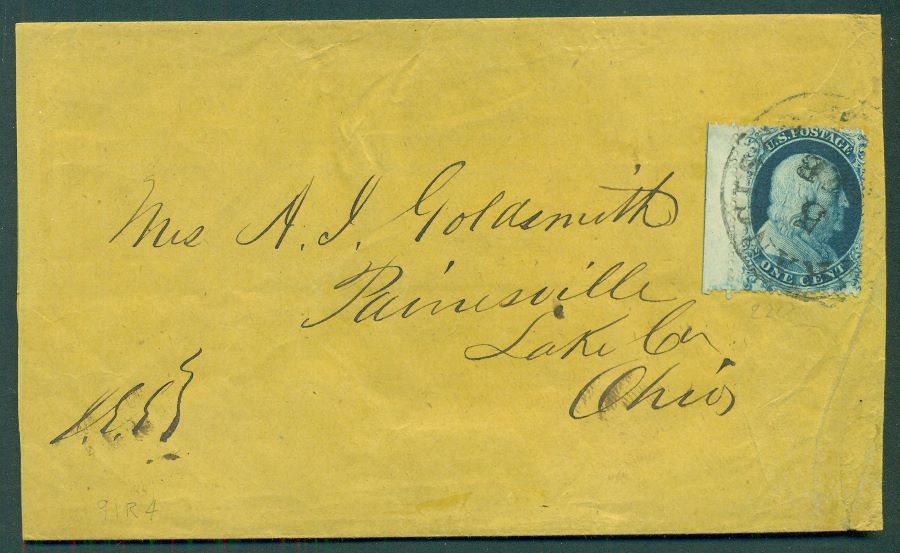 U.S. POSTAGE
ONE CENT
Mrs A. J. Goldsmith
Painesville
Lake Co
Ohio
91R4